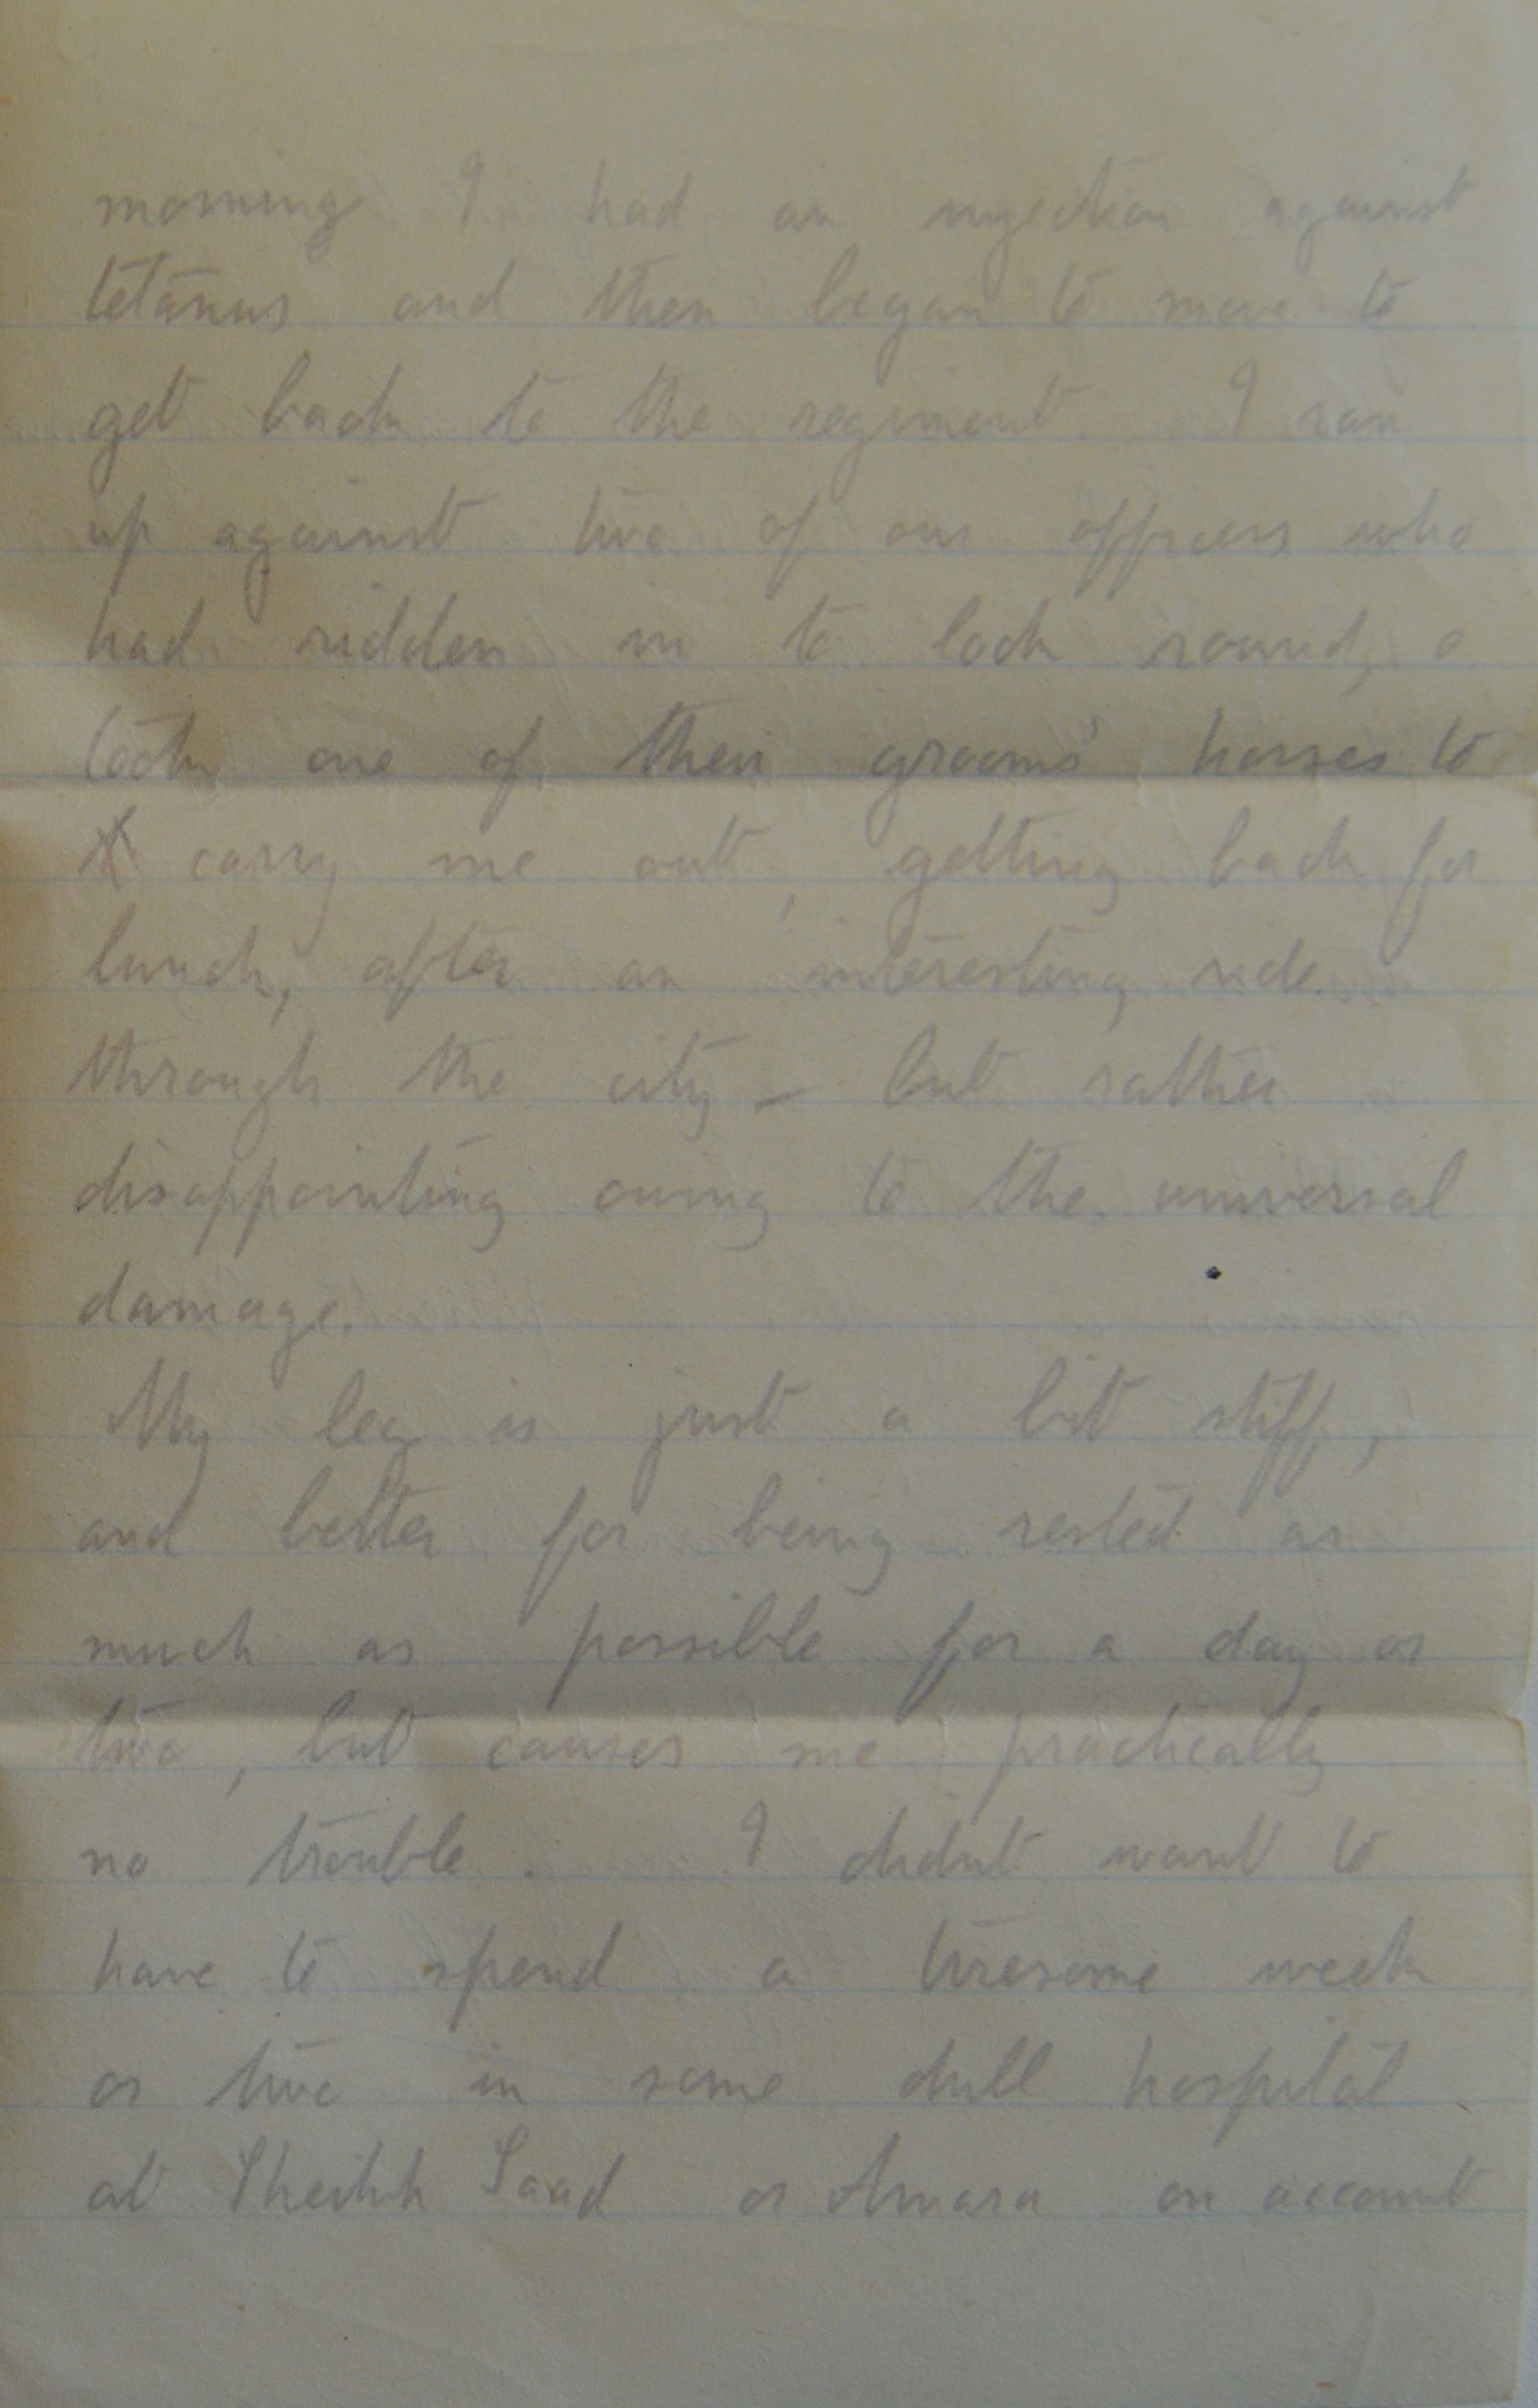 morning I had an injection against
tetanus and then began to move to
get back to the regiment. I ran
up against two of our officers who
had ridden in to look round,
took one of their grooms' horses to
carry me out, getting back for
lunch, after an interesting ride
through the city – but rather
disappointing owing to the universal
damage.
My leg is just a bit stiff,
and better for being rested as
much as possible for a day or
two, but causes me practically
no trouble. I didnt want to
have to spend a tiresome week
or two in some dull hospital
at Sheikh Saad or Amara on account